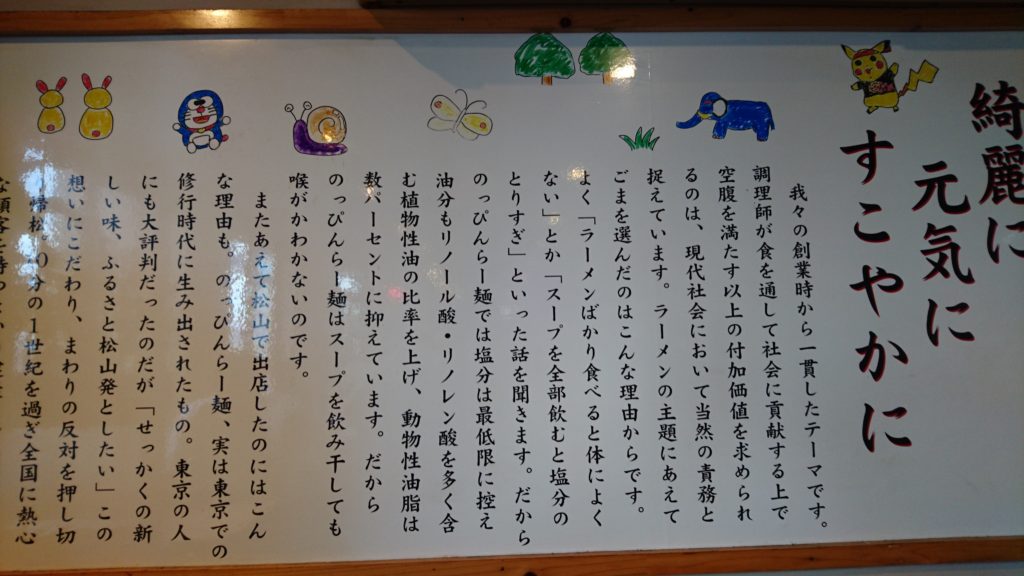 綺麗に
元気に
すこやかに
我々の創業時から一貫したテーマです。
調理師が食を通して社会に貢献する上で
空腹を満たす以上の付加価値を求められ
るのは、現代社会において当然の責務と
捉えています。ラーメンの主題にあえて
ごまを選んだのはこんな理由からです。
よく「ラーメンばかり食べると体によく
ない」とか「スープを全部飲むと塩分の
とりすぎ」といった話を聞きます。だから
のっぴんらー麺では塩分は最低限に控え
油分もリノール酸・リノレン酸を多く含
む植物性油の比率を上げ、動物性油脂は
数パーセントに抑えています。だから
のっぴんらー麺はスープを飲み干しても
喉がかわかないのです。
またあえて松山で出店したのにはこん
な理由も。のっぴんらー麺、実は東京での
修行時代に生み出されたもの。東京の人
にも大評判だったのだが「せっかくの新
しい味、ふるさと松山発としたい」この
想いにこだわり、まわりの反対を押し切
分の1世紀を過ぎ全国に熱心
な顧客を持つ